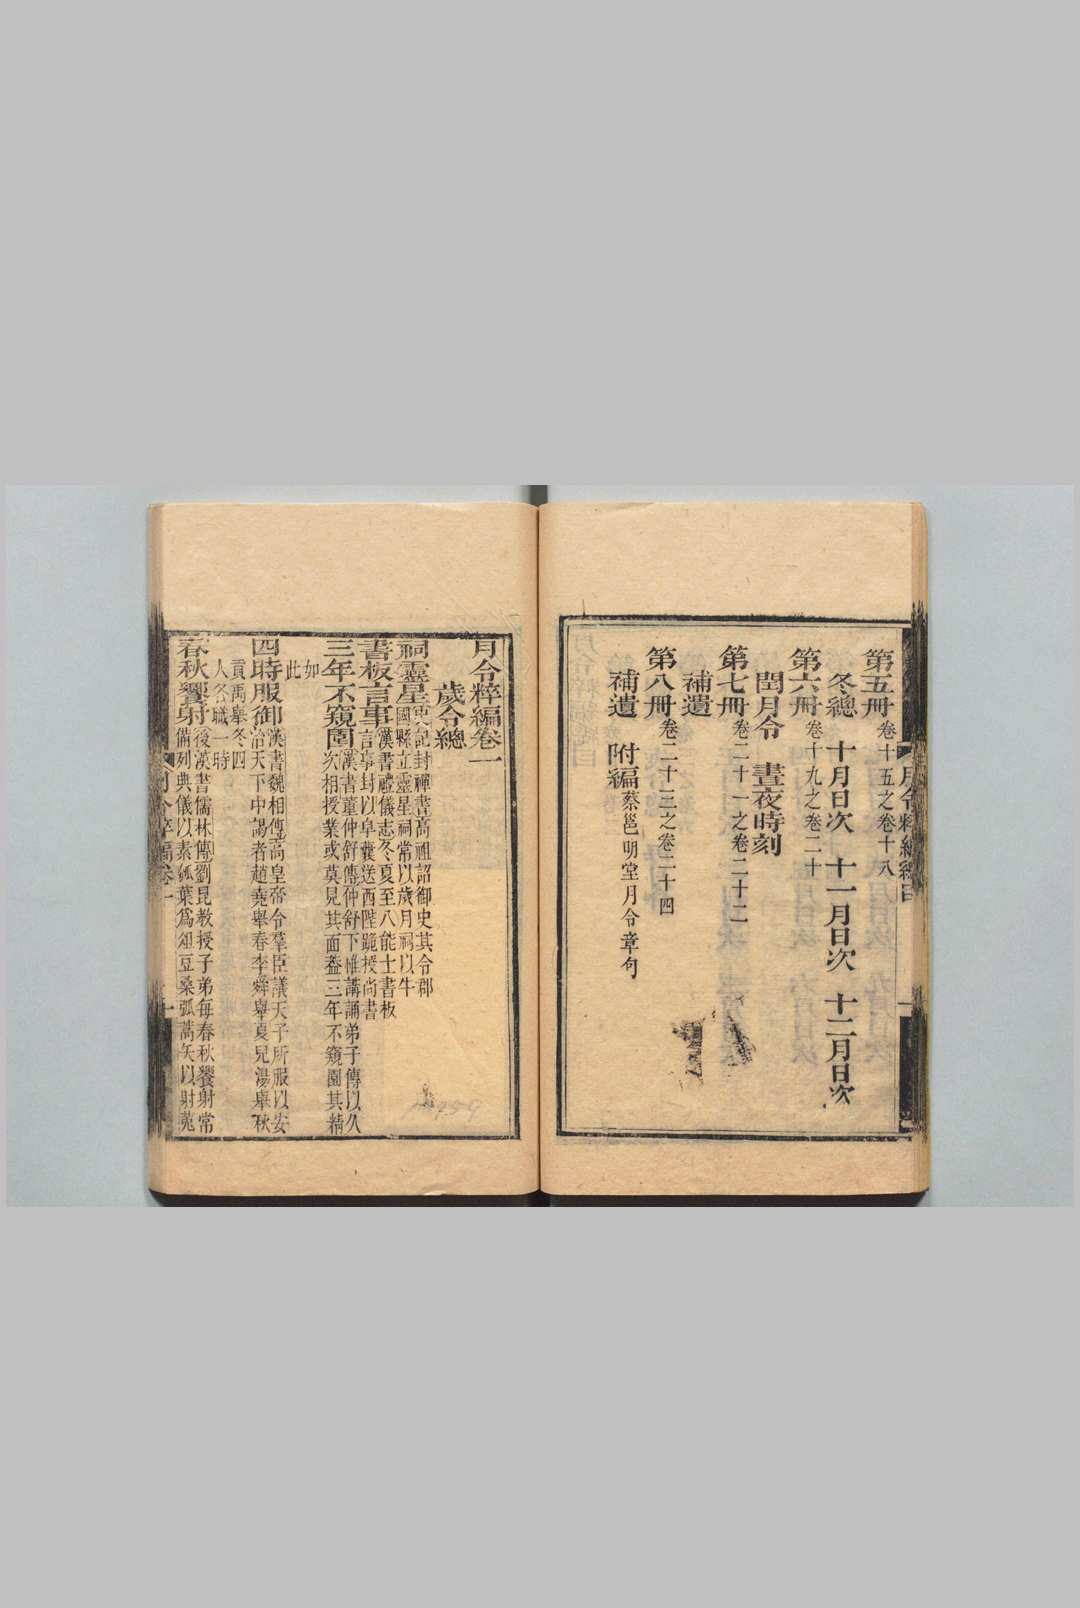 第五冊 卷十五之卷十八
冬總 十月日次 十一月日次 十二月日次
第六冊 卷十九之卷二十
閏月令 晝夜時刻
第七冊 卷二十一之卷二十二
補遺
第八冊 卷二十三之卷二十四
補遺 附編 蔡邕明堂月令章句
月令粹編卷一
歲令總
祠靈星 史記封禪書高祖詔御史其令郡
國縣立靈星祠常以歲月祠以牛
書板言事 漢書禮儀志冬夏至八能士書板
言事封以皁囊送西陛跪授尚書
三年不窺園 漢書董仲舒傳仲舒下帷講誦弟子傳以久
次相授業或莫見其面葢三年不窺園其精
如
此
四時服御 漢書魏相傳高皇帝令羣臣議天子所服以安
治天下中謁者趙堯舉春李舜舉夏兒湯舉秋
貢禹舉冬四
人各職一時
春秋饗射 後漢書儒林傳劉昆教授子弟每春秋饗射常
備列典儀以素瓠葉為俎豆桑弧蒿矢以射菟
月令粹編卷一